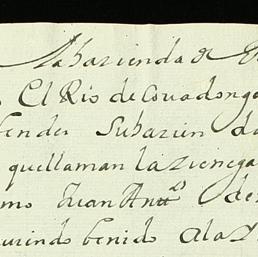 la hazienda de
El Rio de Couadonga
bender Su hazien da
quellaman la zienega
mo Juan Antto de
benido a la